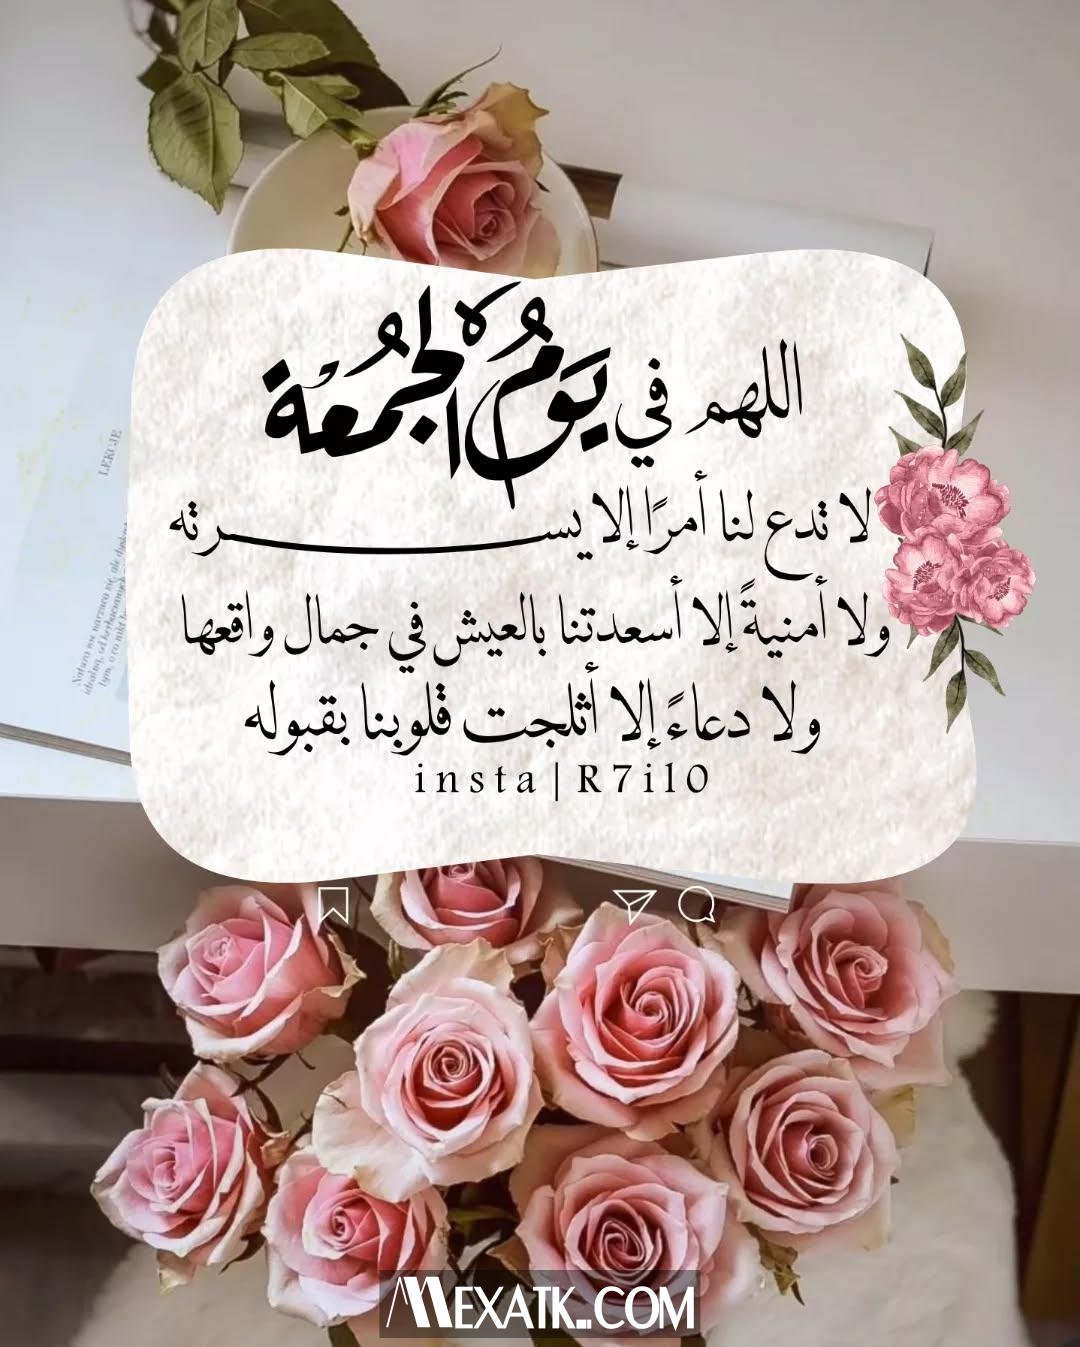 اللهم في يَومُ الجُمعة
لا تدع لنا أمرًا إلا يسرته
ولا أمنيةً إلا أسعدتنا بالعيش في جمال واقعها
ولا دعاءً إلا أثلجت قلوبنا بقبوله
insta|R7il0
LEKCJE
MEXATK..COM